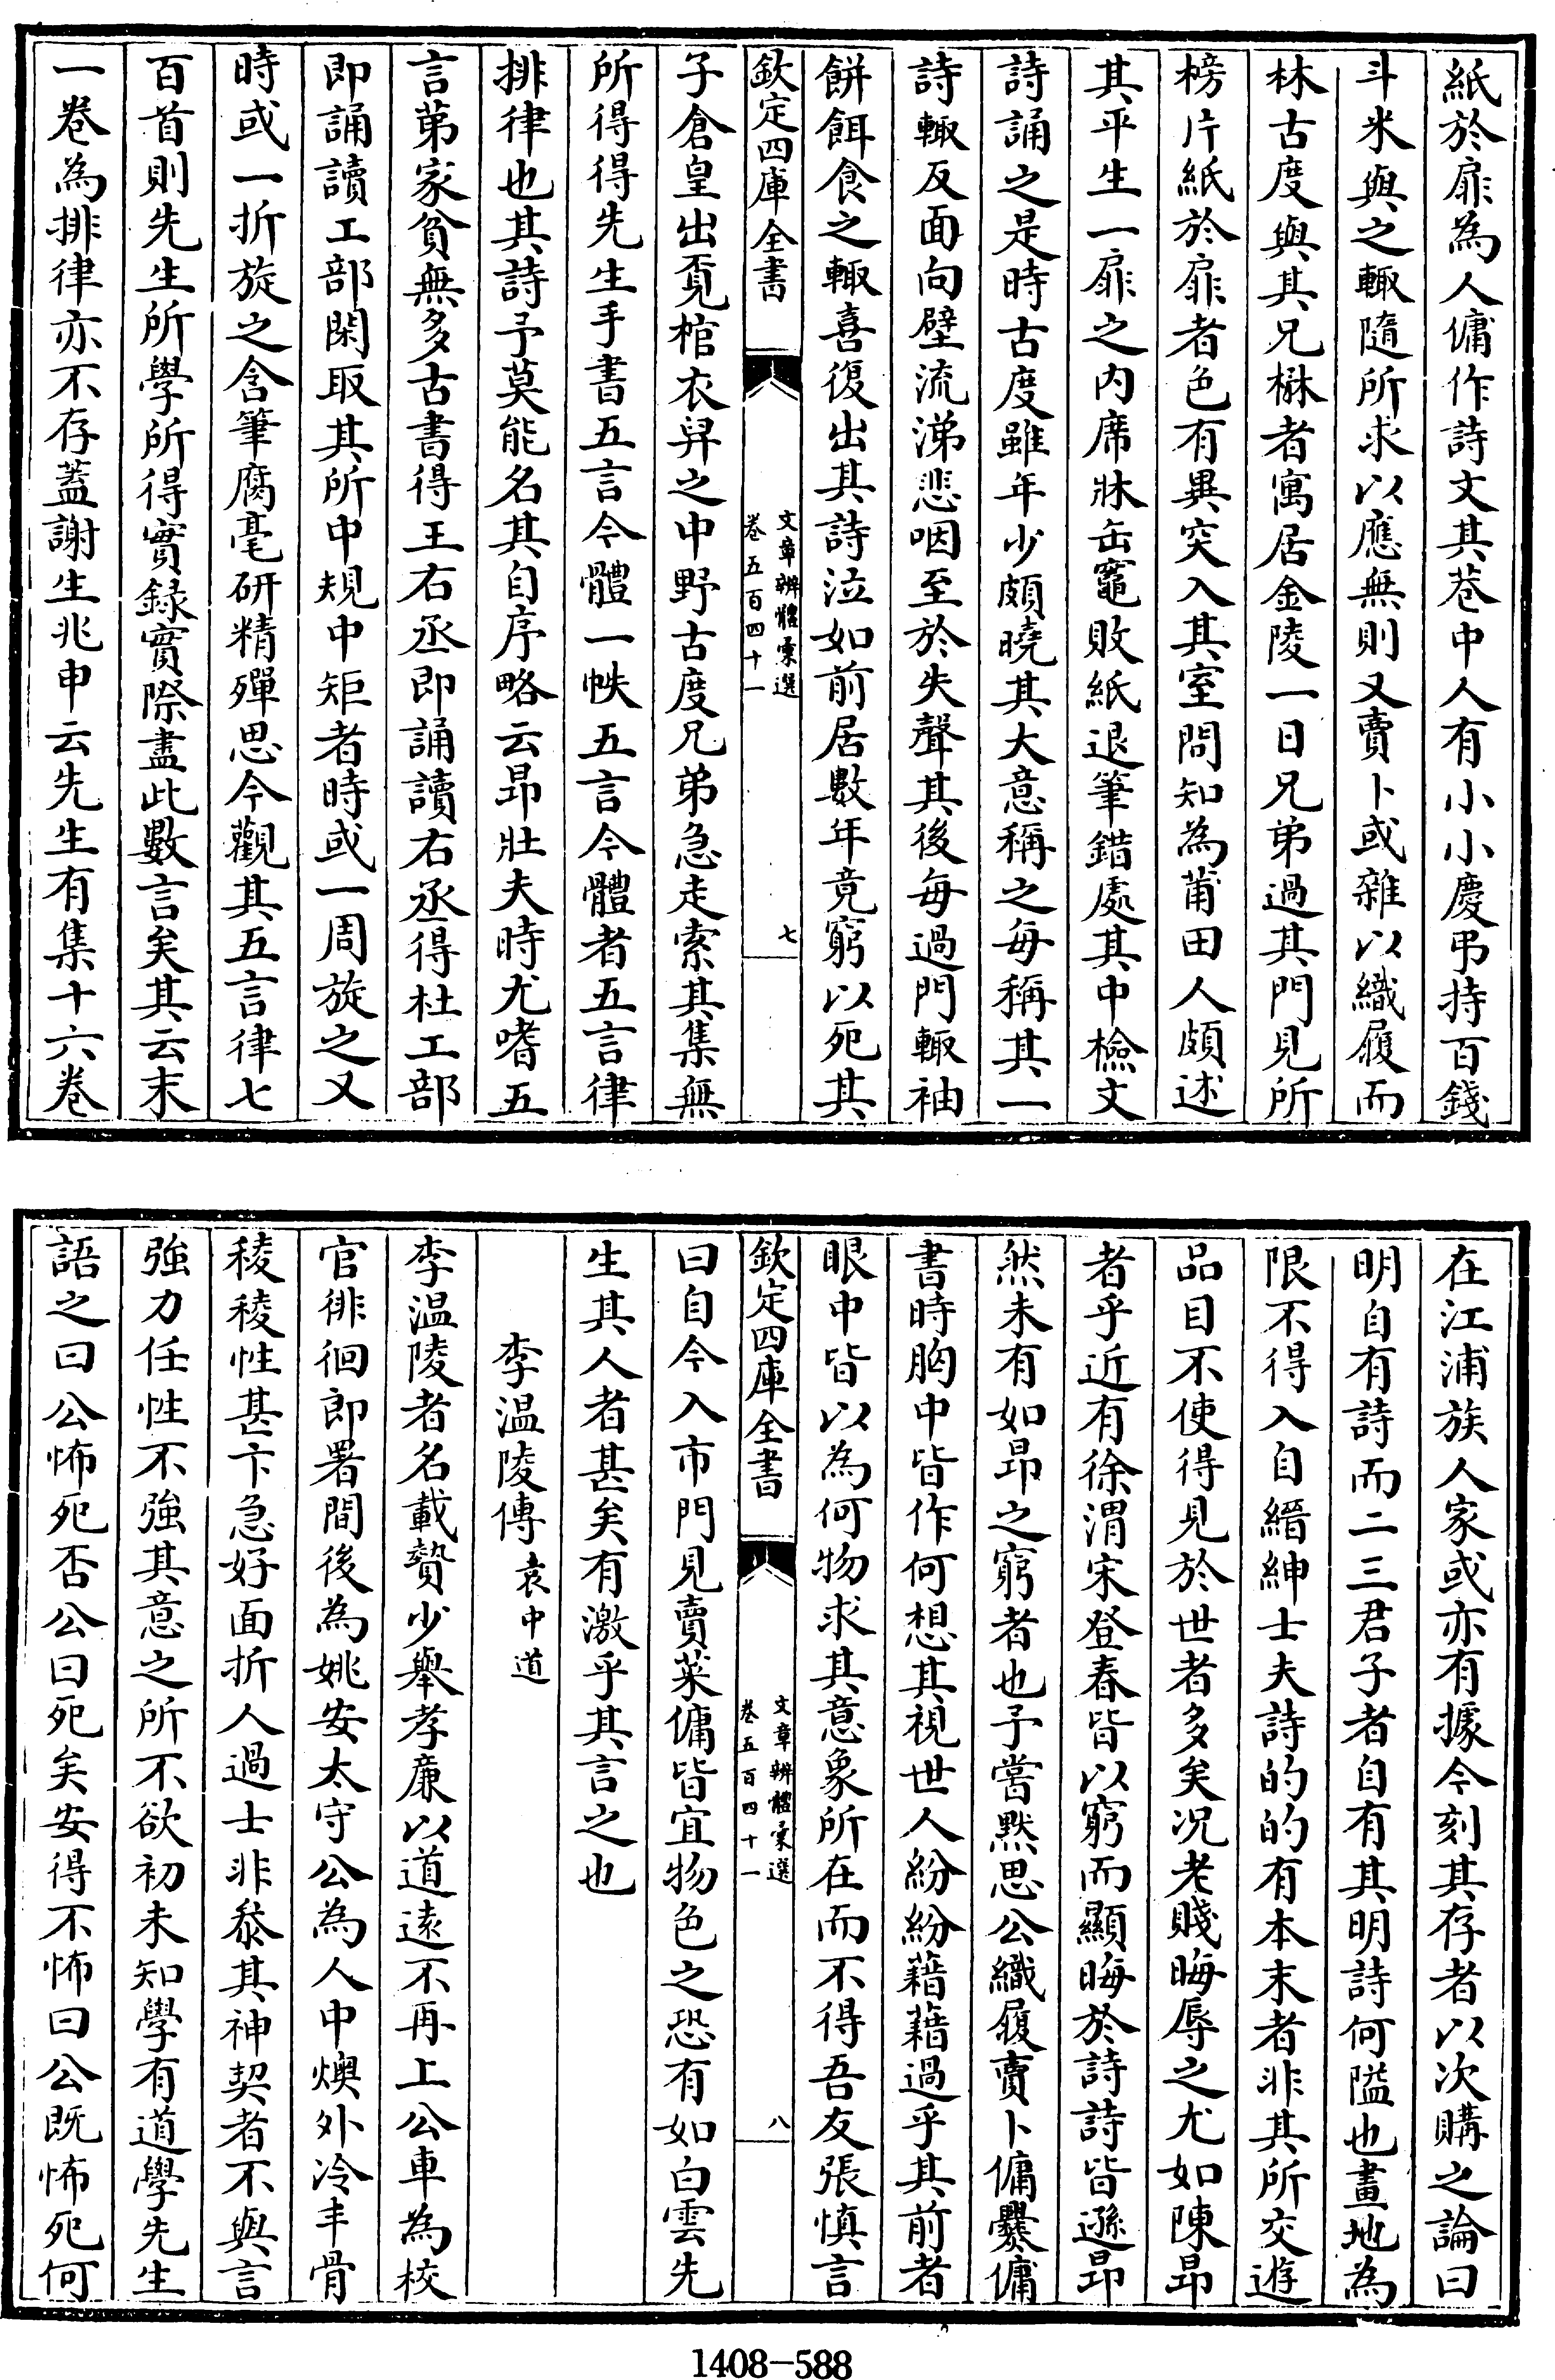 紙於扉為人傭作詩文其巷中人有小小慶弔持百錢
斗米與之輙隨所求以應無則又賣卜或雜以織履而
林古度與其兄楙者寓居金陵一日兄弟過其門見所
榜片紙於扉者色有異突入其室問知為莆田人頗述
其平生一扉之內席牀缶竈敗紙退筆錯處其中檢文
詩誦之是時古度雖年少頗曉其大意稱之每稱其一
詩輙反面向壁流涕悲咽至於失聲其後每過門輙袖
餅餌食之輙喜復出其詩泣如前居數年竟窮以死其
欽定四庫全書
文章辨體彚選
卷五百四十一
七
子倉皇出覔棺衣舁之中野古度兄弟急走索其集無
所得得先生手書五言今體一帙五言今體者五言律
排律也其詩予莫能名其自序略云昂壯夫時尤嗜五
言苐家貧無多古書得王右丞即誦讀右丞得杜工部
即誦讀工部閑取其所中規中矩者時或一周旋之又
時或一折旋之含筆腐毫研精殫思今觀其五言律七
百首則先生所學所得實錄實際盡此數言矣其云末
一卷為排律亦不存蓋謝生兆申云先生有集十六卷
在江浦族人家或亦有據今刻其存者以次購之論曰
明自有詩而二三君子者自有其明詩何隘也畫地為
限不得入自縉紳士夫詩的的有本末者非其所交遊
品目不使得見於世者多矣况老賤晦辱之尤如陳昂
者乎近有徐渭宋登春皆以窮而顯晦於詩詩皆遜昂
然未有如昂之窮者也予嘗黙思公織履賣卜傭爨傭
書時胸中皆作何想其視世人紛紛藉藉過乎其前者
眼中皆以為何物求其意象所在而不得吾友張慎言
欽定四庫全書
文章辨體彚選
卷五百四十一
八
曰自今入市門見賣菜傭皆宜物色之恐有如白雲先
生其人者甚矣有激乎其言之也
李温陵傳 袁中道
李温陵者名載贄少舉孝廉以道遠不再上公車為校
官徘徊郎署間後為姚安太守公為人中燠外冷丰骨
稜稜性甚卞急好面折人過士非叅其神契者不與言
強力任性不強其意之所不欲初未知學有道學先生
語之曰公怖死否公曰死矣安得不怖曰公既怖死何
1408-588